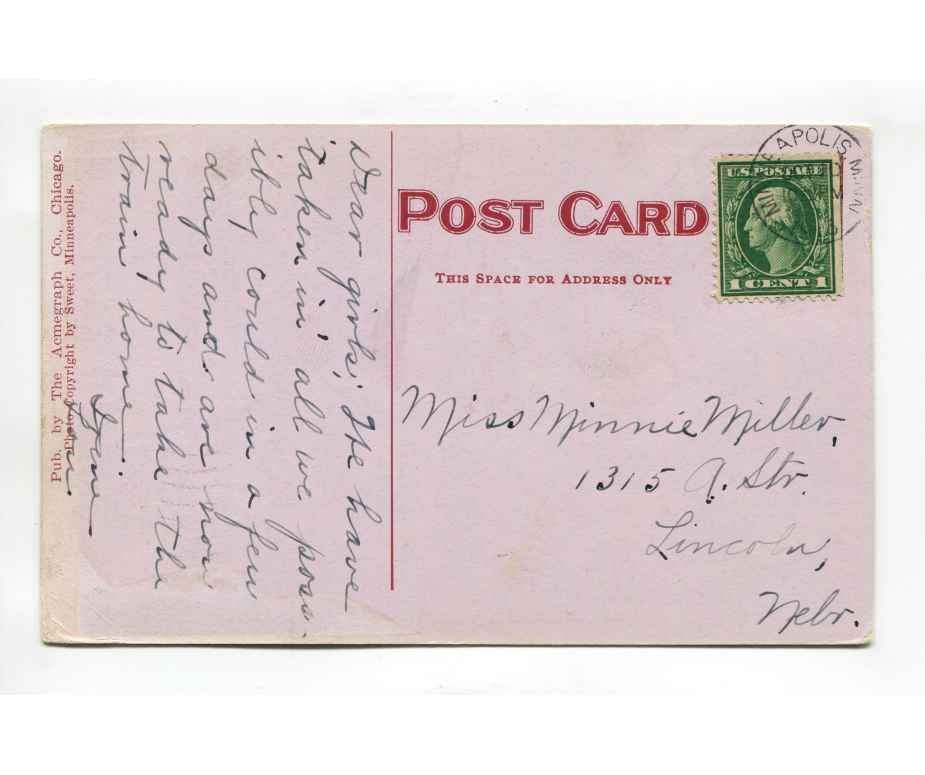 POST CARD
THIS SPACE FOR ADDRESS ONLY
U.S. POSTAGE
1 CENT 1
APOLIS, MINN
Dear girls; We have
taken in all we poss-
ibly could in a few
days and are now
ready to take the
train home
Miss Minnie Miller,
1315 A. Str.
Lincoln,
Nebr.
Pub. by The Acmegraph Co., Chicago.
Photo copyright by Sweet, Minneapolis.